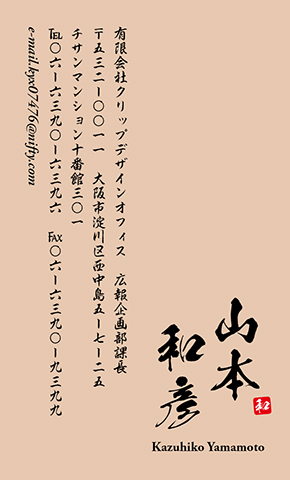 有限会社クリップデザインオフィス　広報企画部課長
〒五三二ー〇〇一一　大阪市淀川区西中島五ー七ー二五
チサンマンション十番館三〇一
℡〇六ー六三九〇ー六三九六　℻〇六ー六三九〇ー九三九九
e-mail.kyx07476@nifty.com
山本
和彦
和
Kazuhiko Yamamoto